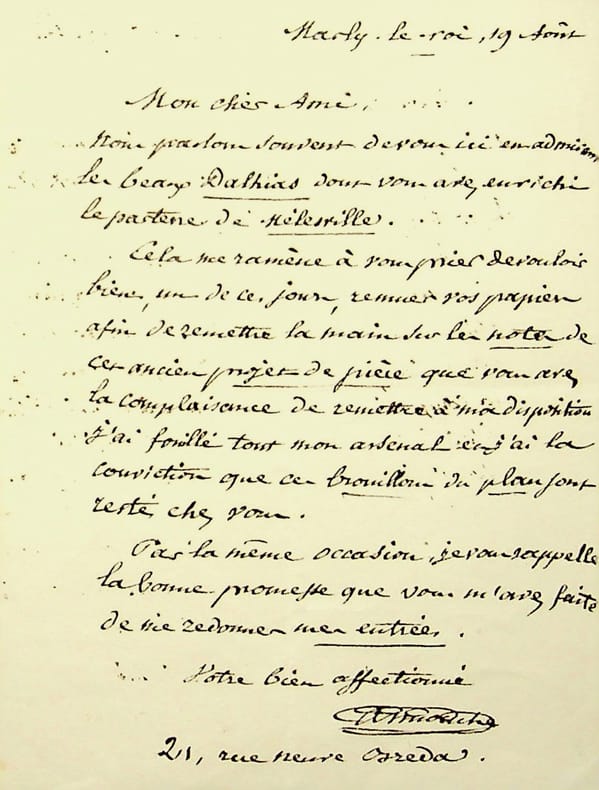 Marly-le-roi, 19 Août
Mon cher Ami,
Nous parlons souvent de vous ici en admirant
les beaux Dalhias dont vous avez enrichi
le parterre de Mélesville.
Cela me ramène à vous prier de vouloir
bien, un de ces jours, remuer vos papiers
afin de remettre la main sur les notes de
cet ancien projet de pièce que vous avez
la complaisance de remettre à ma disposition
J'ai fouillé tout mon arsenal et j'ai la
conviction que ces brouillons du plan sont
restés chez vous.
Par la même occasion, je vous rappelle
la bonne promesse que vous m'avez faite
de me redonner mes entrées.
Votre bien affectionné
21, rue neuve Bréda.